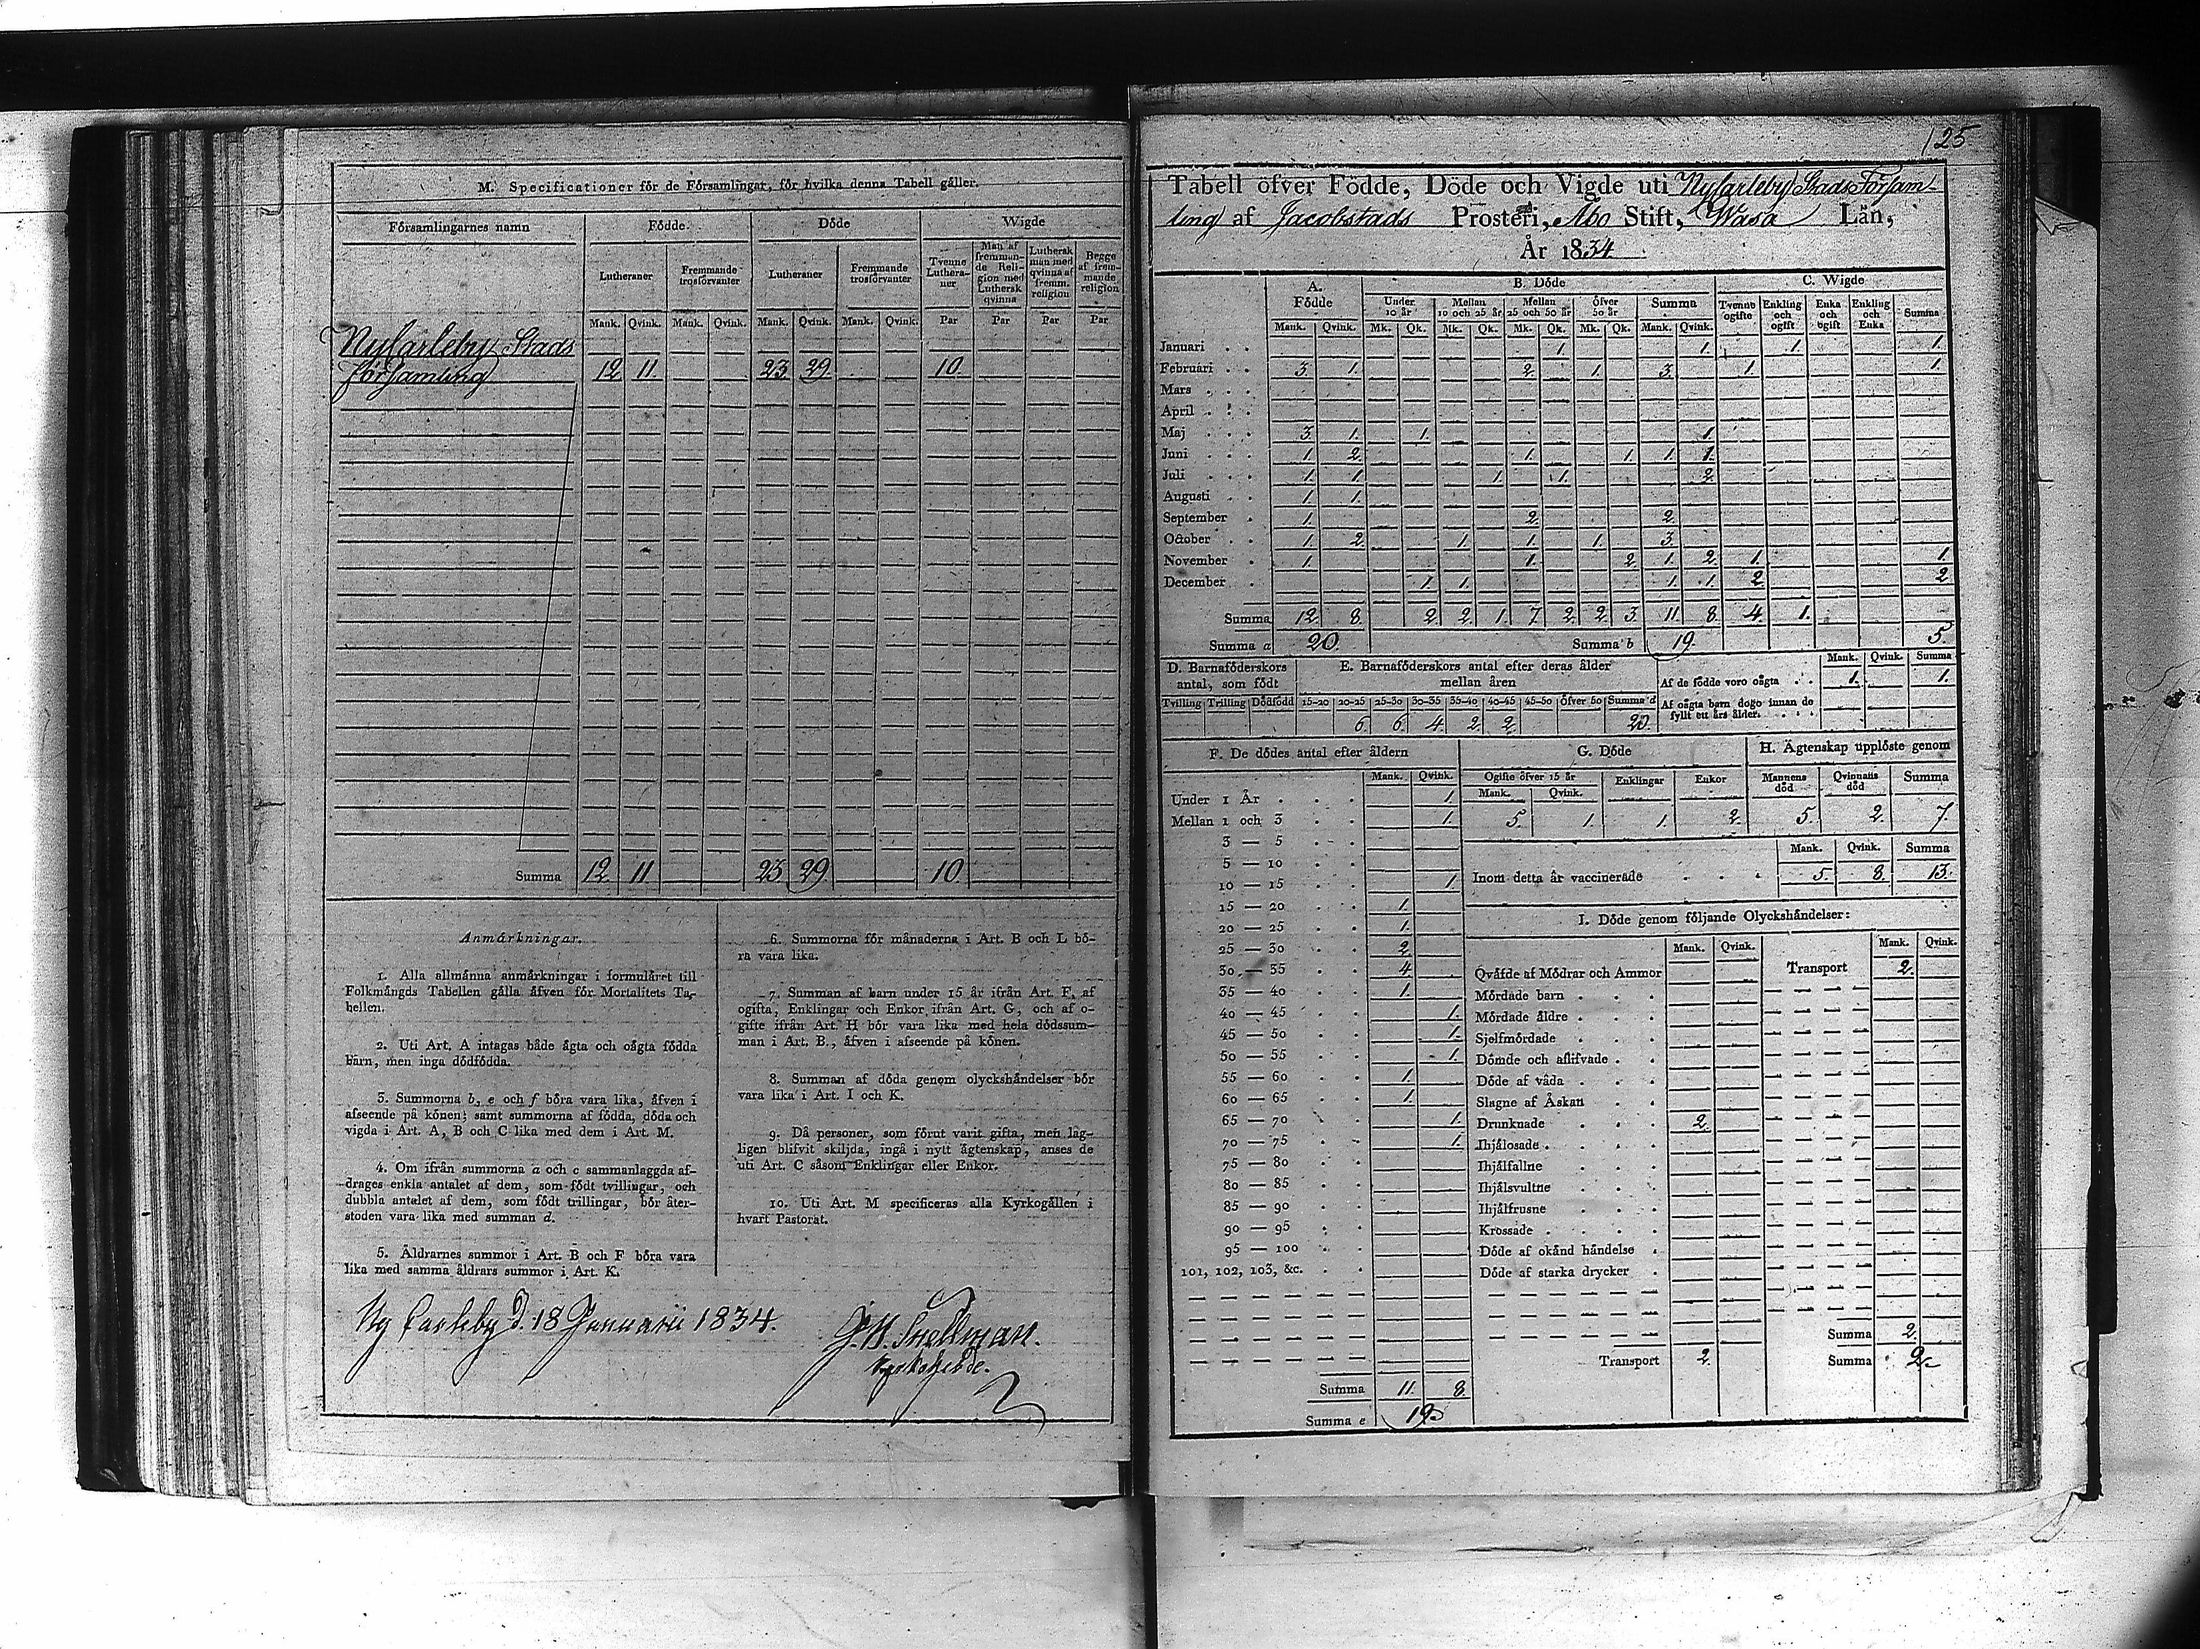 M. Specificationer för de Församlingar, för hvilka denna Tabell gäller.
Församlingarnes namn Födde. Döde Wigde
Lutheraner Fremmande trosförvanter Lutheraner Fremmande trosförvanter Tvenne Lutheraner Man af fremmande Religion med Luthersk qvinna Luthersk man med qvinna af fremm. religion Begge af fremmande religion
Mank. Qvink. Mank. Qvink. Mank. Qvink. Mank. Qvink. Par Par Par Par
Nycarleby Stads
församling 12 11. 23 29 10.
Summa 12 11 23 29 10.
Anmärkningar.
1. Alla allmänna anmärkningar i formuläret till
Folkmängds Tabellen gälla äfven för Mortalitets Ta-
bellen.
2. Uti Art. A intagas både ägta och oägta födda
barn, men inga dödfödda.
3. Summorna b, e och f böra vara lika, äfven i
afseende på könen; samt summorna af födda, döda och
vigda i Art. A, B och C lika med dem i Art. M.
4. Om ifrån summorna a och c sammanlaggda af-
drages enkla antalet af dem, som födt tvillingar, och
dubbla antalet af dem, som födt trillingar, bör åter-
stoden vara lika med summan d.
5. Åldrarnes summor i Art. B och F böra vara
lika med samma åldrars summor i Art. K.
6. Summorna för månaderna i Art. B och L bö-
ra vara lika.
7. Summan af barn under 15 år ifrån Art. F, af
ogifta, Enklingar och Enkor ifrån Art. G, och af o-
gifte ifrån Art. H bör vara lika med hela dödssum-
man i Art. B., äfven i afseende på könen.
8. Summan af döda genom olyckshändelser bör
vara lika i Art. I och K.
9. Då personer, som förut varit gifta, men lag-
ligen blifvit skiljda, ingå i nytt ägtenskap, anses de
uti Art. C såsom Enklingar eller Enkor.
10. Uti Art. M specificeras alla Kyrkogällen i
hvart Pastorat.
Ny Carleby d. 18 Januarii 1834.
J. W. Snellman.
Kyrkoherde.
125
Tabell öfver Födde, Döde och Vigde uti Nycarleby Stads Församling
af Jacobstads Prosteri, Åbo Stift, Wasa Län,
År 1834.
A. Födde B. Döde C. Wigde
Under 10 år Mellan 10 och 25 år Mellan 25 och 50 år Öfver 50 år Summa Tvenne ogifte Enkling och ogift Enka och ogift Enkling och Enka Summa
Mank. Qvink. Mk. Qk. Mk. Qk. Mk. Qk. Mk. Qk. Mank. Qvink.
Januari 1. 1. 1. 1
Februari 3. 1. 2. 1. 3. 1. 1.
Mars
April
Maj 3. 1. 1. 1.
Juni 1. 2. 1. 1 1. 1.
Juli 1. 1. 1. 1. 2.
Augusti 1. 1.
September 1. 2. 2.
October 1. 2. 1. 1. 1. 3.
November 1. 1. 2 1. 2. 1. 1.
December 1. 1. 1. 1. 2. 2
Summa 12. 8. 2. 2. 1. 7. 2. 2. 3. 11. 8. 4. 1.
Summa a 20. Summa b 19. 5.
D. Barnaföderskors antal, som födt E. Barnaföderskors antal efter deras ålder mellan åren Mank. Qvink. Summa
Tvilling Trilling Dödfödd 15-20 20-25 25-30 30-35 35-40 40-45 45-50 Öfver 50 Summa d
6. 6. 4. 2. 2. 20.
Af de födde voro oägta 1. 1.
Af oägta barn dogo innan de
fyllt ett års ålder.
F. De dödes antal efter åldern
Mank. Qvink.
Under 1 År 1.
Mellan 1 och 3 1.
3 — 5
5 — 10
10 — 15 1.
15 — 20 1.
20 — 25 1.
25 — 30 2.
30 — 35 4.
35 — 40 1.
40 — 45 1.
45 — 50 1.
50 — 55 1.
55 — 60 1.
60 — 65 1.
65 — 70 1.
70 — 75 1.
75 — 80
80 — 85
85 — 90
90 — 95
95 — 100
101, 102, 103, &c.
Summa 11. 8.
Summa e 19.
G. Döde H. Ägtenskap upplöste genom
Ogifte öfver 15 år Enklingar Enkor Mannens död Qvinnans död Summa
Mank. Qvink.
5. 1. 1. 2. 5. 2. 7.
Mank. Qvink. Summa
Inom detta år vaccinerade 5. 8. 13.
I. Döde genom följande Olyckshändelser:
Mank. Qvink. Mank. Qvink.
Qväfde af Mödrar och Ammor Transport 2.
Mördade barn
Mördade äldre
Sjelfmördade
Dömde och aflifvade
Döde af våda
Slagne af Åskan
Drunknade 2.
Ihjälosade
Ihjälfallne
Ihjälsvultne
Ihjälfrusne
Krossade
Döde af okänd händelse
Döde af starka drycker
Summa 2.
Transport 2. Summa 2.